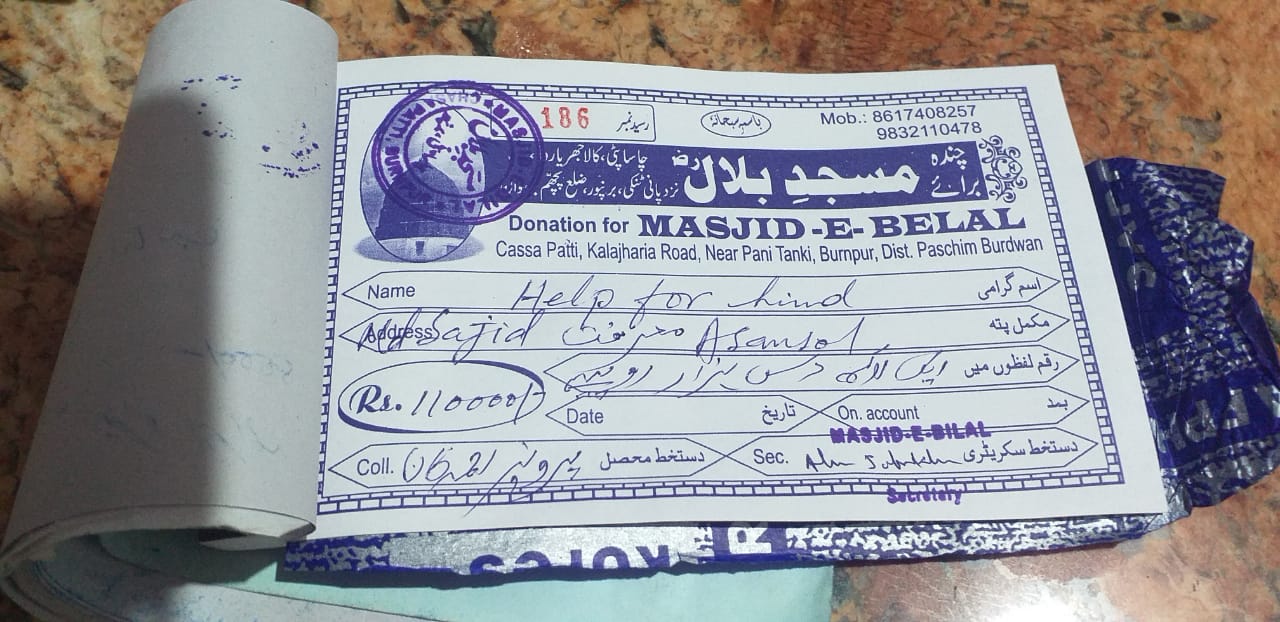 رسید نمبر 186
Mob.: 8617408257
9832110478
چندہ برائے مسجدِ بلالؓ
نزد پانی ٹنکی، برنپور، ضلع پچھم
Donation for MASJID-E-BELAL
Cassa Patti, Kalajharia Road, Near Pani Tanki, Burnpur, Dist. Paschim Burdwan
Name Help for hind اسم گرامی
Address Md Sajid معرفت Asansol مکمل پتہ
رقم لفظوں میں ایک لاکھ دس ہزار روپیہ
Rs. 110000/-
Date تاریخ On. account بمد
MASJID-E-BILAL
Coll. پرویز احمد خان دستخط محصل Sec. دستخط سکریٹری
Secretary
KOTES